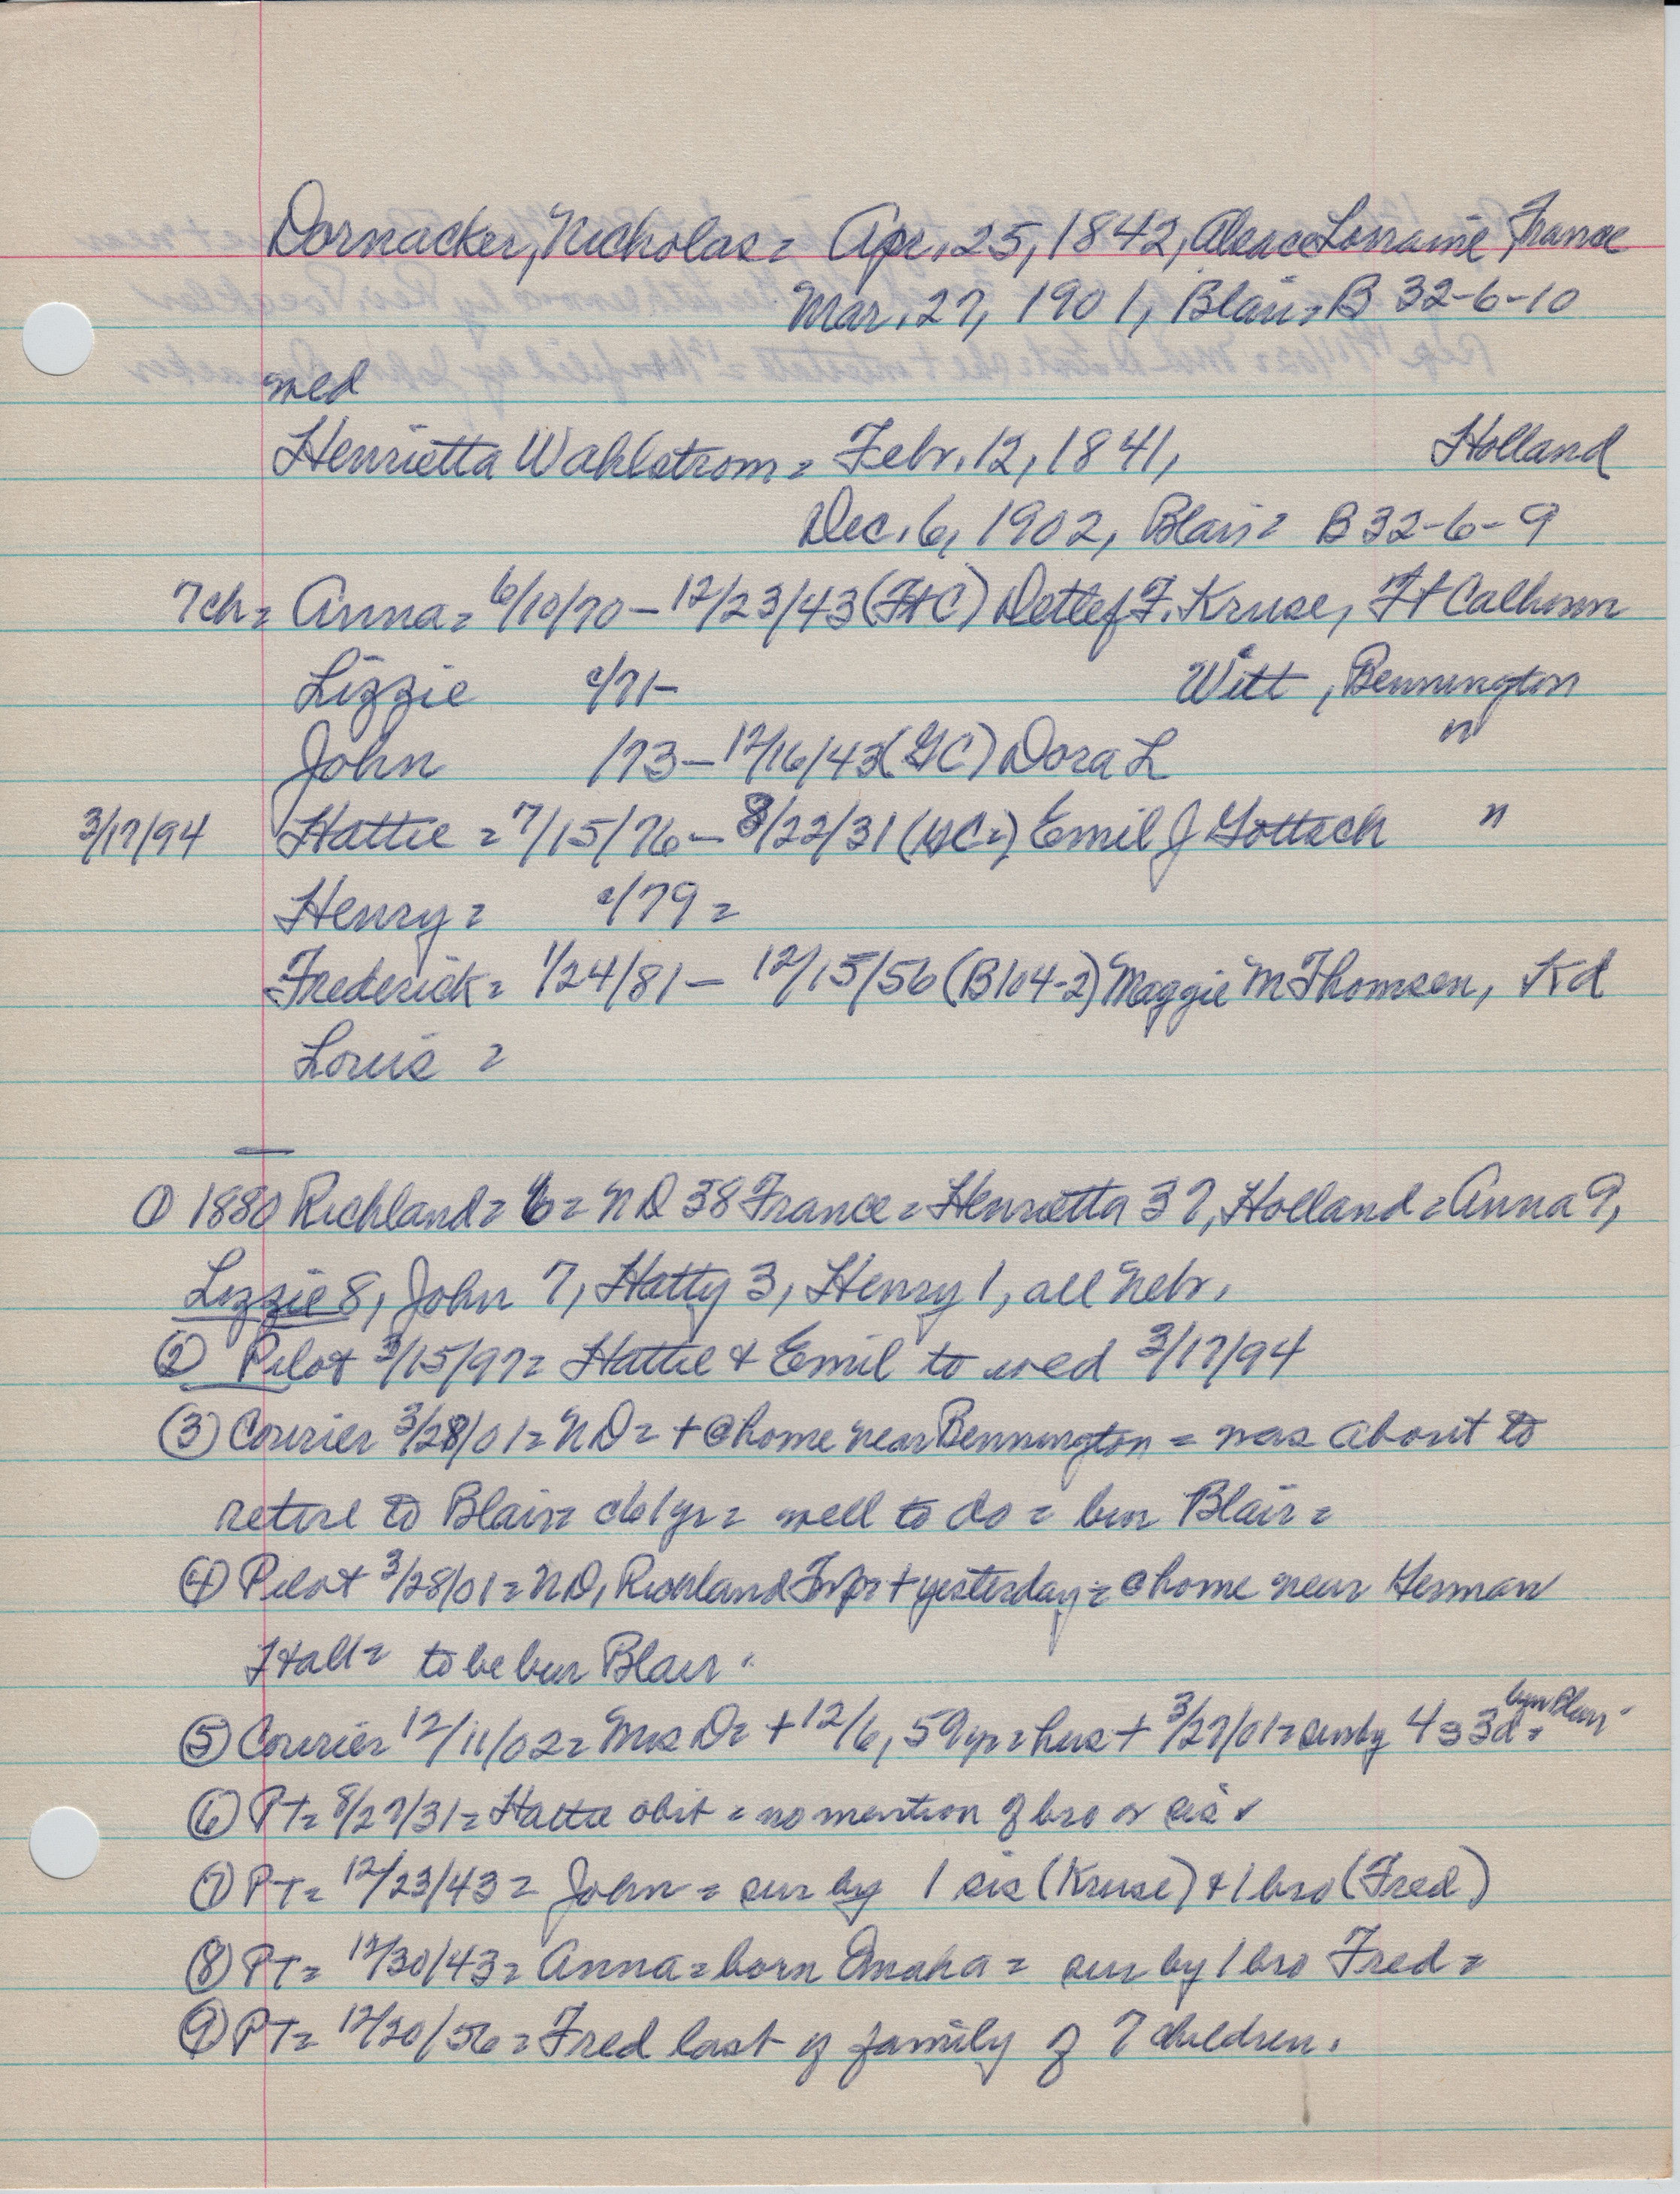 Dornacker, Nicholas = Apr. 25, 1842, Alsace Lorraine, France
Mar. 27, 1901, Blair = B 32-6-10
med
Henrietta Wahlstrom = Febr. 12, 1841, Holland
Dec. 6, 1902, Blair = B 32-6-9
7ch = Anna = 6/10/70 - 12/23/43 (FtC) Detlef F. Kruse, Ft Calhoun
Lizzie c/71- Witt, Bennington
John /73 - 12/16/43 (GC) Dora L "
3/17/94 Hattie = 7/15/76 - 8/22/31 ( C=) Emil J Gottsch "
Henry = c/79 =
Frederick = 1/24/81 - 12/15/56 (B104-2) Maggie M Thomsen, Kd
Louis =
① 1880 Richland = 6 = ND 38 France = Henrietta 37, Holland = Anna 9,
Lizzie 8, John 7, Hatty 3, Henry 1, all Nebr.
② Pilot 3/15/97 = Hattie & Emil to wed 3/17/94
③ Courier 3/28/01 = ND = + @ home near Bennington = was about to
retire to Blair = c61yr = well to do = bur Blair =
④ Pilot 3/28/01 = ND, Richland Twp = + yesterday = @ home near German
Hall = to be bur Blair.
⑤ Courier 12/11/02 = Mrs D = + 12/6, 59yr = hus + 3/27/01 = surby 4s 3d = bur Blair
⑥ PT = 8/27/31 = Hattie obit = no mention of bro or sis
⑦ PT = 12/23/43 = John = sur by 1 sis (Kruse) & 1 bro (Fred)
⑧ PT = 12/30/43 = Anna = born Omaha = sur by 1 bro Fred =
⑨ PT = 12/20/56 = Fred last of family of 7 children.